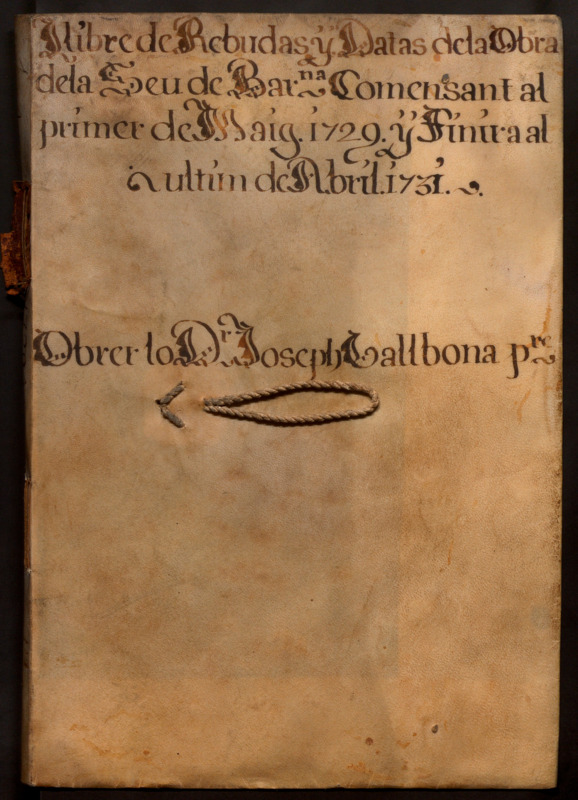 Llibre de Rebudas, ÿ Datas de la Obra
de la Seu de Bar.na Comensant al
primer de Maig. 1729. ÿ Finira al
ultim de Abril. 1731.
Obrer lo Dr Joseph Vallbona pre